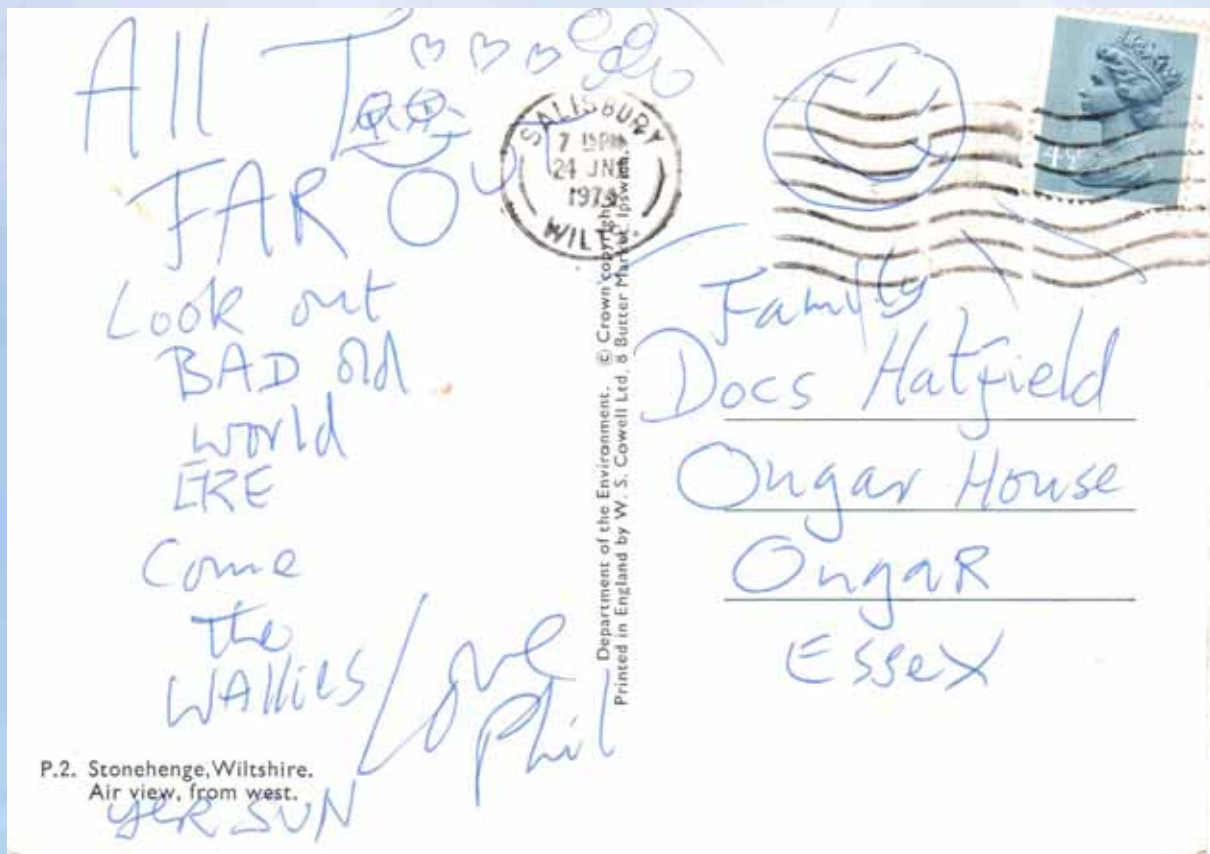 All Too
FAR OuT
Look out
BAD old
world
ERE
Come
the
WALLIES
Love
Phil
YER SUN
P.2. Stonehenge, Wiltshire.
Air view, from west.
SALISBURY
24 JNE
WILTS.
Department of the Environment. © Crown copyright
Printed in England by W. S. Cowell Ltd. 8 Butter Market, Ipswich.
Family
Docs Hatfield
Ongar House
OngaR
EsseX